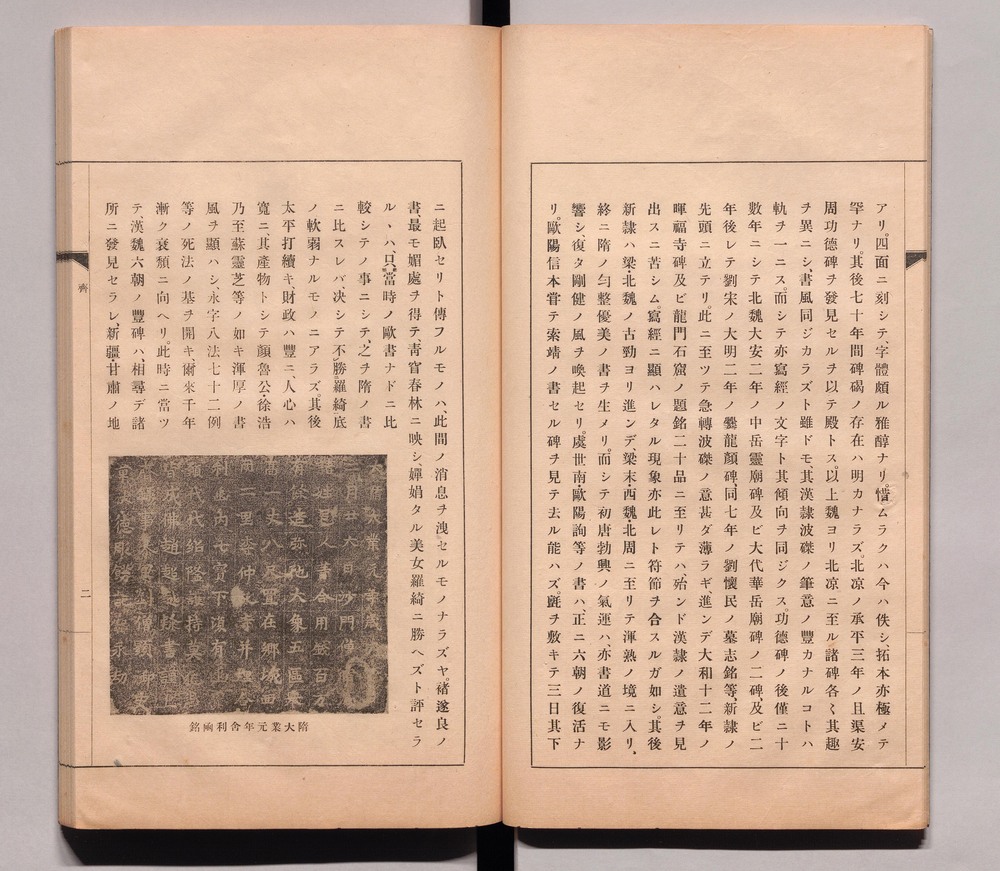 アリ。四面ニ刻シテ、字體頗ル雅醇ナリ。惜ムラクハ今ハ佚シ、拓本亦極メテ
罕ナリ。其後七十年間碑碣ノ存在ハ明カナラズ。北凉ノ承平三年ノ且渠安
周功德碑ヲ發見セルヲ以テ殿トス。以上魏ヨリ北凉ニ至ル諸碑各〻其趣
ヲ異ニシ、書風同ジカラズト雖ドモ、其漢隷波磔ノ筆意ノ豐カナルコトハ
軌ヲ一ニス。而シテ亦寫經ノ文字ト其傾向ヲ同ジクス。功德碑ノ後僅ニ十
數年ニシテ北魏大安二年ノ中岳靈廟碑及ビ大代華岳廟碑ノ二碑、及ビ二
年後レテ劉宋ノ大明二年ノ爨龍顏碑、同七年ノ劉懷民ノ墓志銘等、新隷ノ
先頭ニ立テリ。此ニ至ツテ急轉波磔ノ意甚ダ薄ラギ、進ンデ大和十二年ノ
暉福寺碑及ビ龍門石窟ノ題銘二十品ニ至リテハ、殆ンド漢隷ノ遺意ヲ見
出スニ苦シム。寫經ニ顯ハレタル現象亦此レト符節ヲ合スルガ如シ。其後
新隷ハ梁北魏ノ古勁ヨリ進ンデ、梁末、西魏北周ニ至リテ渾熟ノ境ニ入リ、
終ニ隋ノ勻整優美ノ書ヲ生メリ。而シテ初唐勃興ノ氣運ハ、亦書道ニモ影
響シ、復タ剛健ノ風ヲ喚起セリ。虞世南・歐陽詢等ノ書ハ、正ニ六朝ノ復活ナ
リ。歐陽信本嘗テ索靖ノ書セル碑ヲ見テ去ル能ハズ。氈ヲ敷キテ三日其下
ニ起臥セリト傳フルモノハ、此間ノ消息ヲ洩セルモノナラズヤ。褚遂良ノ
書、最モ媚處ヲ得テ、靑窅春林ニ映シ、嬋娟タル美女羅綺ニ勝ヘズト評セラ
ル、ハ、當時ノ歐書ナドニ比
較シテノ事ニシテ、之ヲ隋ノ書
ニ比スレバ、決シテ不勝羅綺底
ノ軟弱ナルモノニアラズ。其後
太平打續キ、財政ハ豐ニ人心ハ
寬ニ、其產物トシテ顏魯公・徐浩
乃至蘇靈芝等ノ如キ渾厚ノ書
風ヲ顯ハシ、永字八法七十二例
等ノ死法ノ基ヲ開キ、爾來千年
漸ク衰頽ニ向ヘリ。此時ニ當ツ
テ、漢魏六朝ノ豐碑ハ、相尋デ諸
所ニ發見セラレ、新疆・甘肅ノ地
隋大業元年舍利函銘
二